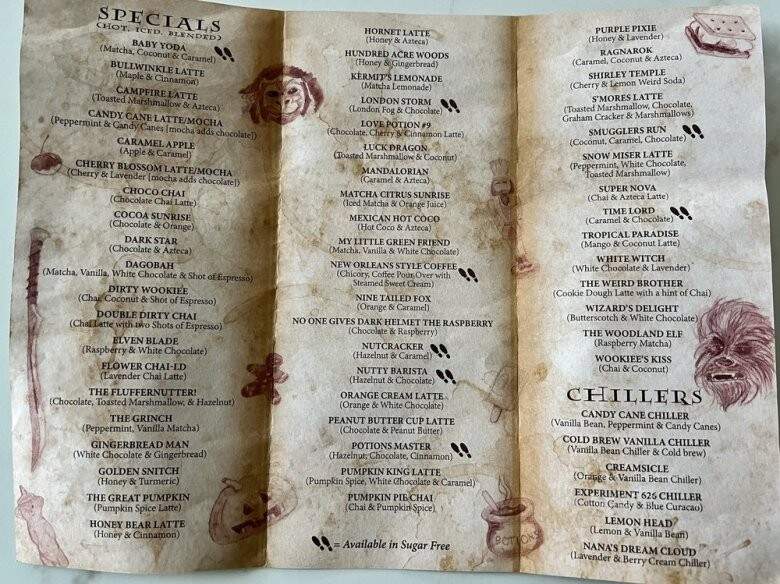 SPECIALS
(HOT, ICED, BLENDED)
BABY YODA
(Matcha, Coconut & Caramel)
BULLWINKLE LATTE
(Maple & Cinnamon)
CAMPFIRE LATTE
(Toasted Marshmallow & Azteca)
CANDY CANE LATTE/MOCHA
(Peppermint & Candy Canes [mocha adds chocolate])
CARAMEL APPLE
(Apple & Caramel)
CHERRY BLOSSOM LATTE/MOCHA
(Cherry & Lavender [mocha adds chocolate])
CHOCO CHAI
(Chocolate Chai Latte)
COCOA SUNRISE
(Chocolate & Orange)
DARK STAR
(Chocolate & Azteca)
DAGOBAH
(Matcha, Vanilla, White Chocolate & Shot of Espresso)
DIRTY WOOKIEE
(Chai, Coconut & Shot of Espresso)
DOUBLE DIRTY CHAI
(Chai Latte with two Shots of Espresso)
ELVEN BLADE
(Raspberry & White Chocolate)
FLOWER CHAI-LD
(Lavender Chai Latte)
THE FLUFFERNUTTER!
(Chocolate, Toasted Marshmallow, & Hazelnut)
THE GRINCH
(Peppermint, Vanilla Matcha)
GINGERBREAD MAN
(White Chocolate & Gingerbread)
GOLDEN SNITCH
(Honey & Turmeric)
THE GREAT PUMPKIN
(Pumpkin Spice Latte)
HONEY BEAR LATTE
(Honey & Cinnamon)
HORNET LATTE
(Honey & Azteca)
HUNDRED ACRE WOODS
(Honey & Gingerbread)
KERMIT'S LEMONADE
(Matcha Lemonade)
LONDON STORM
(London Fog & Chocolate)
LOVE POTION #9
(Chocolate, Cherry & Cinnamon Latte)
LUCK DRAGON
(Toasted Marshmallow & Coconut)
MANDALORIAN
(Caramel & Azteca)
MATCHA CITRUS SUNRISE
(Iced Matcha & Orange Juice)
MEXICAN HOT COCO
(Hot Coco & Azteca)
MY LITTLE GREEN FRIEND
(Matcha, Vanilla & White Chocolate)
NEW ORLEANS STYLE COFFEE
(Chicory, Coffee Pour Over with
Steamed Sweet Cream)
NINE TAILED FOX
(Orange & Caramel)
NO ONE GIVES DARK HELMET THE RASPBERRY
(Chocolate & Raspberry)
NUTCRACKER
(Hazelnut & Caramel)
NUTTY BARISTA
(Hazelnut & Chocolate)
ORANGE CREAM LATTE
(Orange & White Chocolate)
PEANUT BUTTER CUP LATTE
(Chocolate & Peanut Butter)
POTIONS MASTER
(Hazelnut, Chocolate, Cinnamon)
PUMPKIN KING LATTE
(Pumpkin Spice, White Chocolate & Caramel)
PUMPKIN PIE CHAI
(Chai & Pumpkin Spice)
= Available in Sugar Free
PURPLE PIXIE
(Honey & Lavender)
RAGNAROK
(Caramel, Coconut & Azteca)
SHIRLEY TEMPLE
(Cherry & Lemon Weird Soda)
S'MORES LATTE
(Toasted Marshmallow, Chocolate,
Graham Cracker & Marshmallows)
SMUGGLERS RUN
(Coconut, Caramel, Chocolate)
SNOW MISER LATTE
(Peppermint, White Chocolate,
Toasted Marshmallow)
SUPER NOVA
(Chai & Azteca Latte)
TIME LORD
(Caramel & Chocolate)
TROPICAL PARADISE
(Mango & Coconut Latte)
WHITE WITCH
(White Chocolate & Lavender)
THE WEIRD BROTHER
(Cookie Dough Latte with a hint of Chai)
WIZARD'S DELIGHT
(Butterscotch & White Chocolate)
THE WOODLAND ELF
(Raspberry Matcha)
WOOKIEE'S KISS
(Chai & Coconut)
CHILLERS
CANDY CANE CHILLER
(Vanilla Bean, Peppermint & Candy Canes)
COLD BREW VANILLA CHILLER
(Vanilla Bean Chiller & Cold brew)
CREAMSICLE
(Orange & Vanilla Bean Chiller)
EXPERIMENT 626 CHILLER
(Cotton Candy & Blue Curacao)
LEMON HEAD
(Lemon & Vanilla Bean)
NANA'S DREAM CLOUD
(Lavender & Berry Cream Chiller)
POTIONS